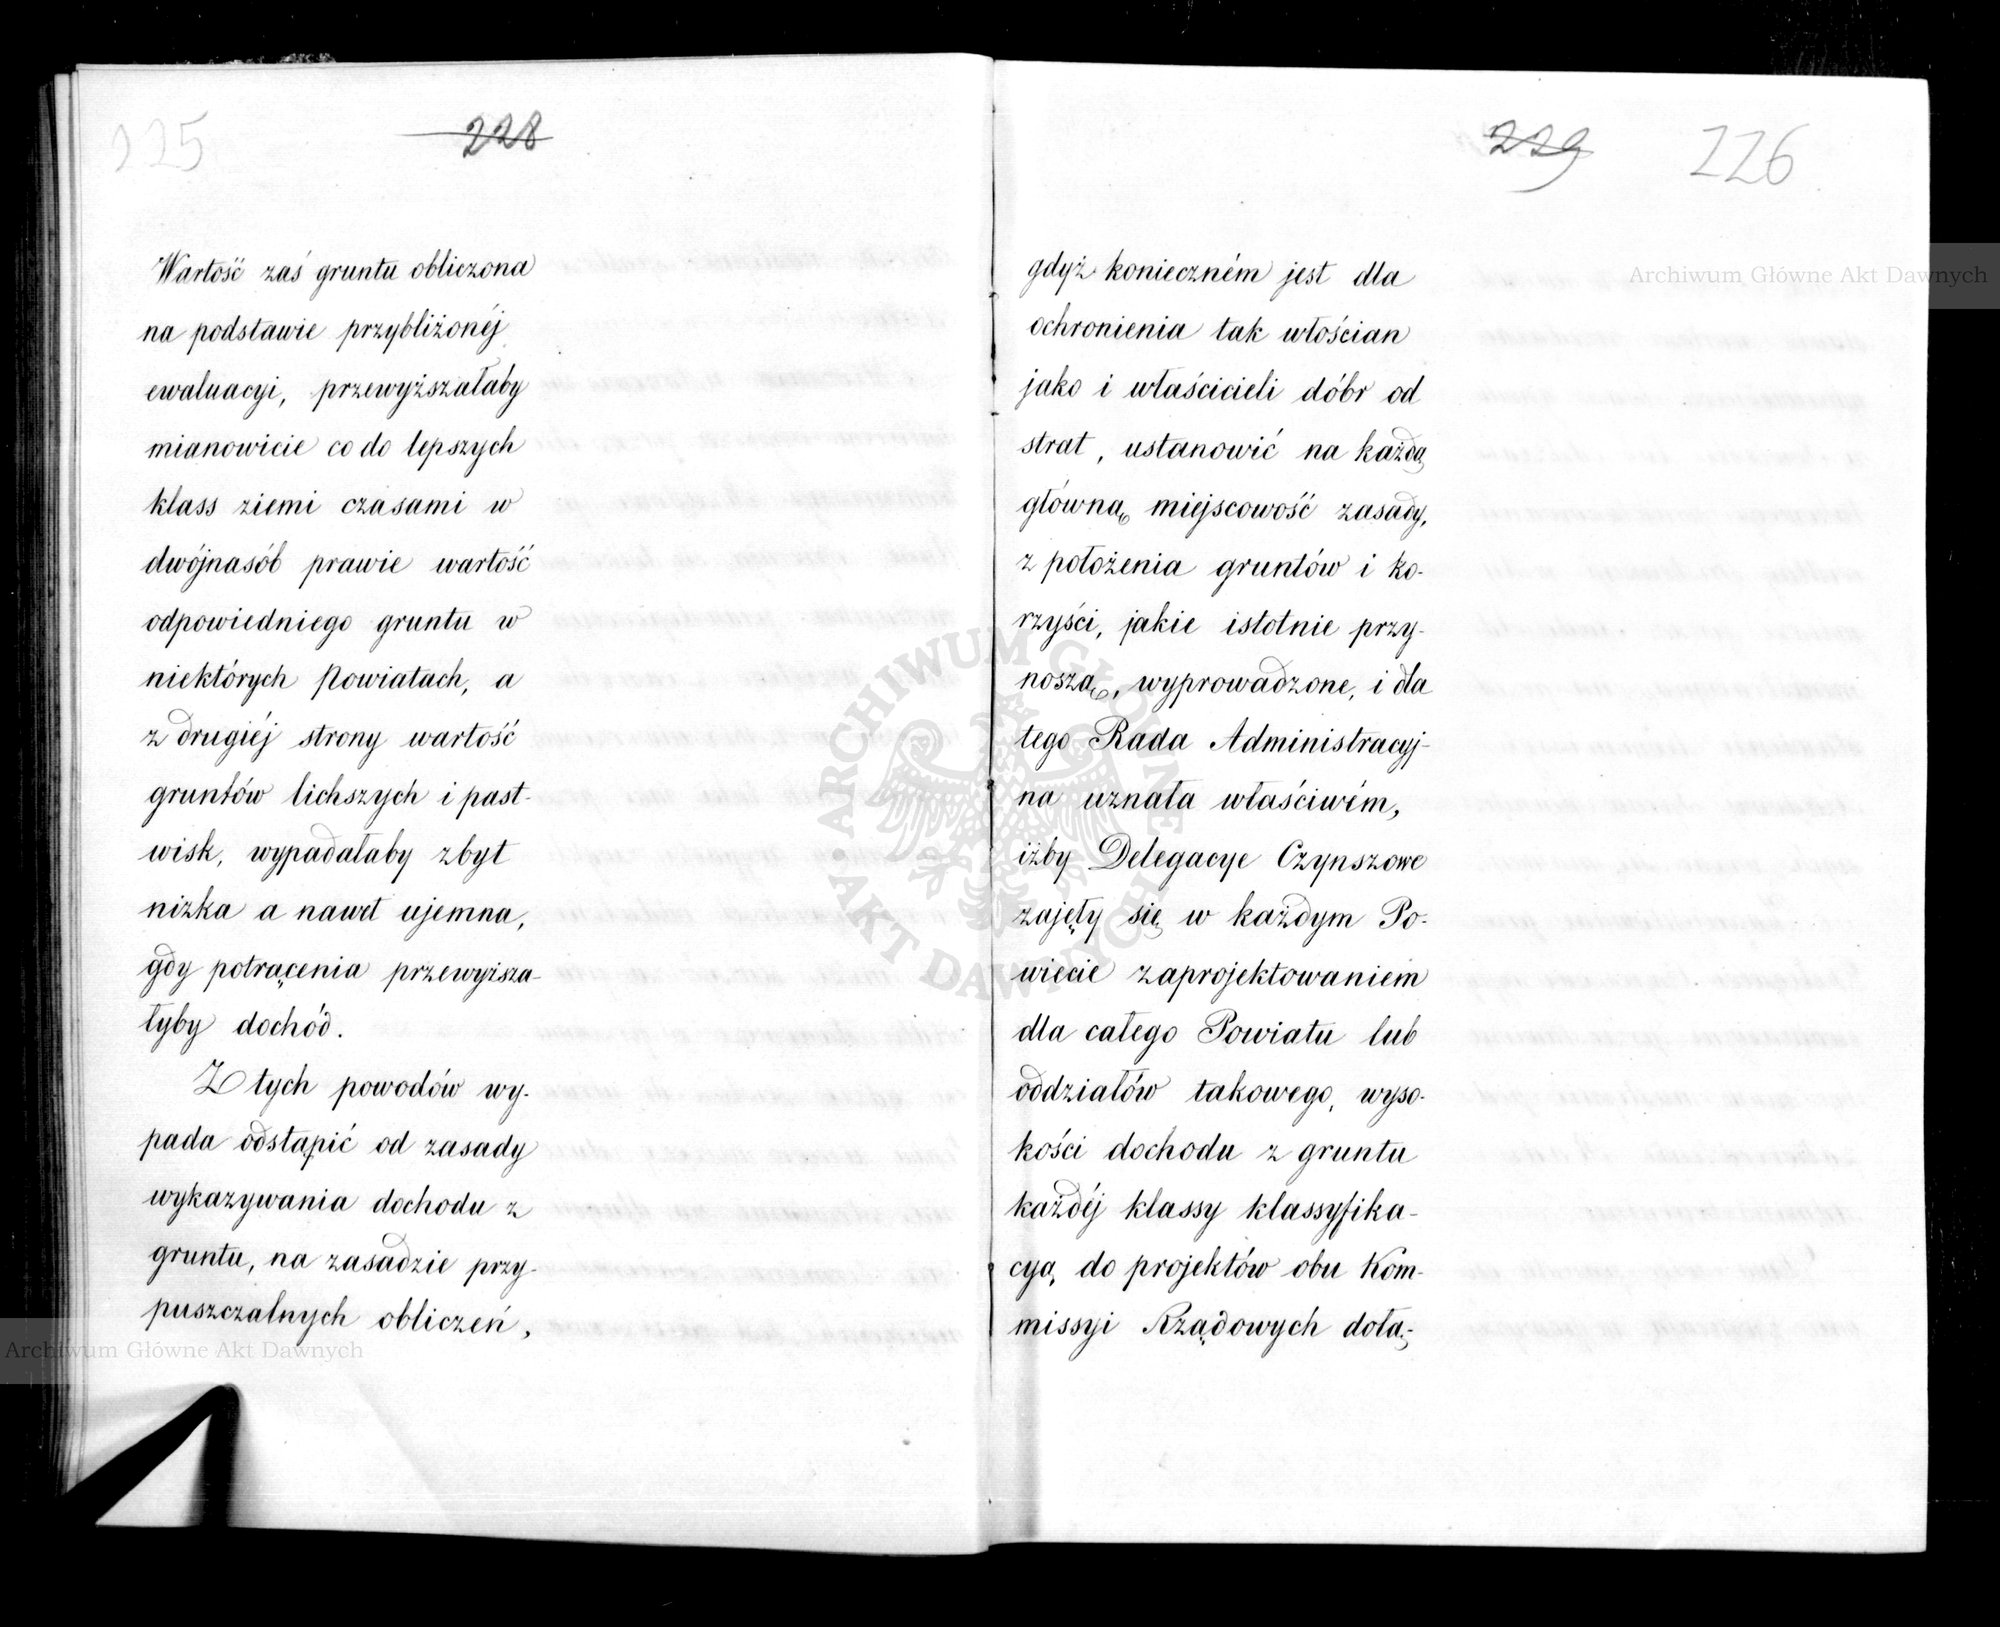 225
228
Wartość zaś gruntu obliczona
na podstawie przybliżonéj
ewaluacyi, przewyższałaby
mianowicie co do lepszych
klass ziemi czasami w
dwójnasób prawie wartość
odpowiedniego gruntu w
niektórych Powiatach, a
z drugiéj strony wartość
gruntów lichszych i past-
wisk, wypadałaby zbyt
nizka a nawet ujemna,
gdy potrącenia przewyższa-
łyby dochód.
Z tych powodów wy-
pada odstąpić od zasady
wykazywania dochodu z
gruntu, na zasadzie przy-
puszczalnych obliczeń,
Archiwum Główne Akt Dawnych
229
226
gdyż konieczném jest dla
ochronienia tak włościan
jako i właścicieli dóbr od
strat, ustanowić na każdą
główną miejscowość zasady,
z położenia gruntów i ko-
rzyści, jakie istotnie przy-
noszą, wyprowadzone, i dla
tego Rada Administracyj-
na uznała właściwém,
iżby Delegacye Czynszowe
zajęły się w każdym Po-
wiecie zaprojektowaniem
dla całego Powiatu lub
oddziałów takowego, wyso-
kości dochodu z gruntu
każdéj klassy klassyfika-
cyą do projektów obu Kom-
missyi Rządowych dołą-
Archiwum Główne Akt Dawnych
ARCHIWUM GŁÓWNE AKT DAWNYCH